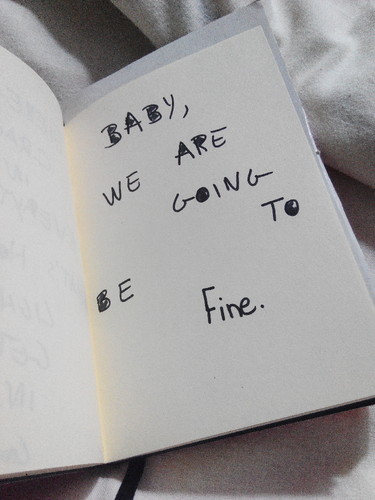 BABY,
WE ARE
GOING
TO
BE Fine.